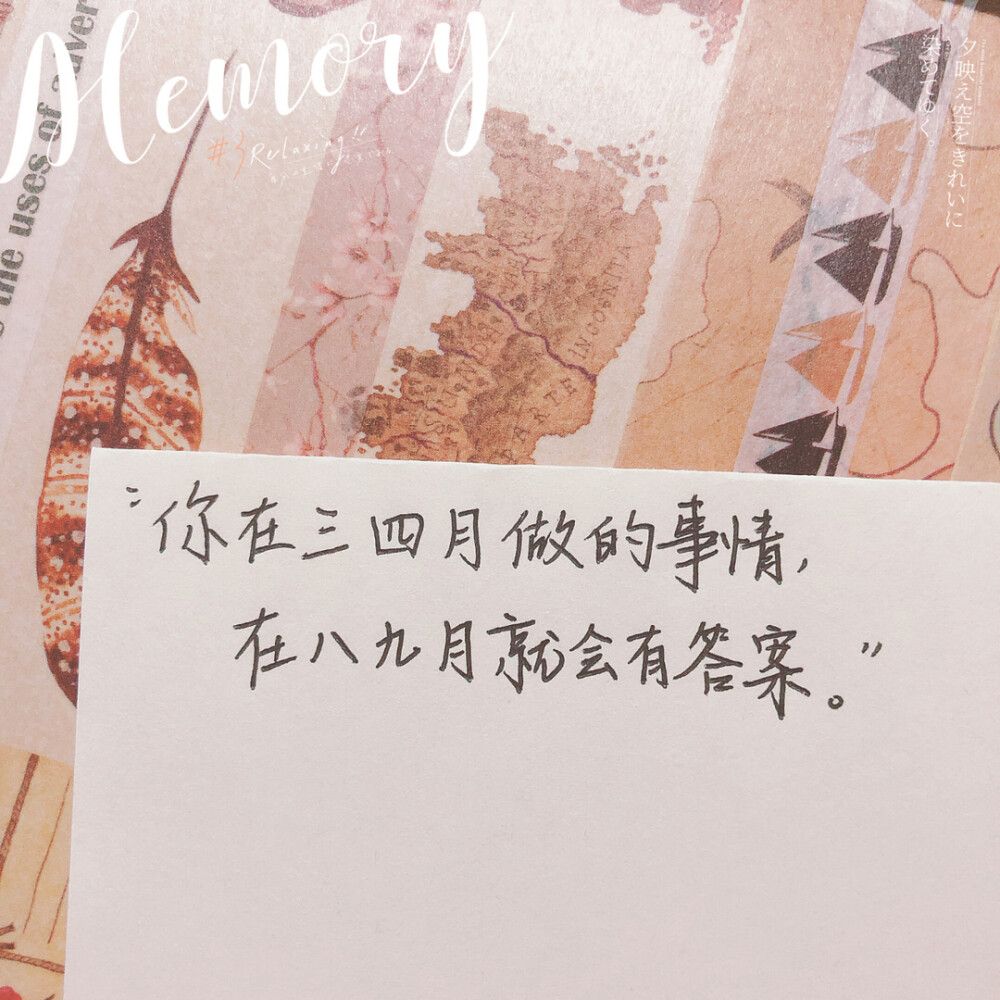 Memory
Relaxing!!
夕映え空をきれいに
染めてゆく。
the uses of adver
INCOGNITA
"你在三四月做的事情,
在八九月就会有答案。"